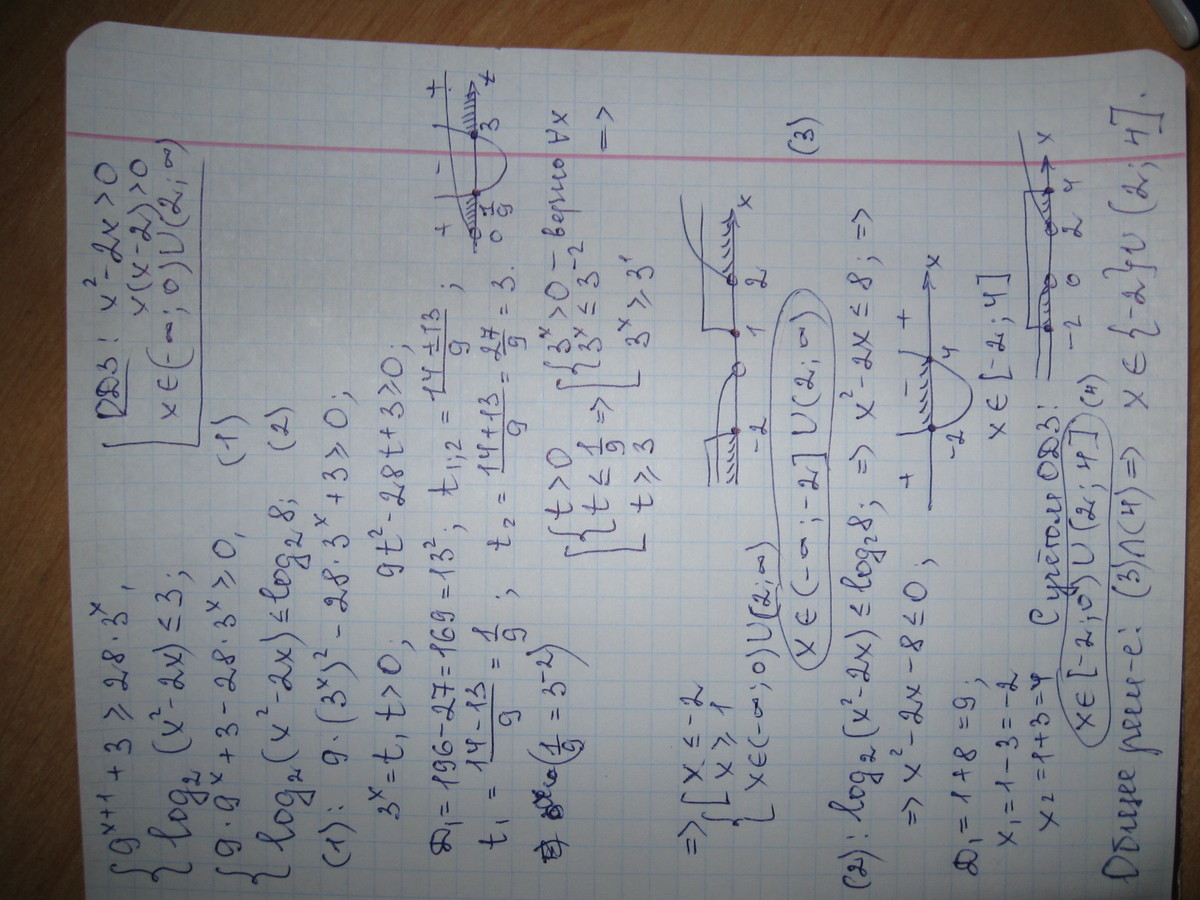 { 9^(x+1) + 3 ≥ 28·3^x,
{ log₂(x²-2x) ≤ 3;
ОДЗ: x²-2x>0
x(x-2)>0
x∈(-∞;0)∪(2;∞)
{ 9·9^x+3-28·3^x ≥ 0, (1)
{ log₂(x²-2x) ≤ log₂8; (2)
(1): 9·(3^x)² - 28·3^x + 3 ≥ 0;
3^x = t, t>0; 9t²-28t+3 ≥ 0;
D₁ = 196-27 = 169 = 13²; t₁;₂ = (14±13)/9;
t₁ = (14-13)/9 = 1/9; t₂ = (14+13)/9 = 27/9 = 3.
+ - +
0 1/9 3 t
(1/9 = 3^-2)
[ { t>0
t ≤ 1/9
t ≥ 3
=> [ { 3^x>0 – верно ∀x
3^x ≤ 3^-2
3^x ≥ 3^1
=>
=> { [ x ≤ -2
x ≥ 1
x∈(-∞;0)∪(2;∞)
-2 1 2 x
x∈(-∞;-2]∪(2;∞) (3)
(2): log₂(x²-2x) ≤ log₂8; => x²-2x ≤ 8; =>
=> x²-2x-8 ≤ 0;
+ - +
-2 4 x
D₁ = 1+8 = 9;
x₁ = 1-3 = -2
x₂ = 1+3 = 4
x∈[-2;4]
С учётом ОДЗ:
-2 0 2 4 x
x∈[-2;0)∪(2;4] (4)
Общее реш-е: (3)∩(4) => x∈{-2}∪(2;4].